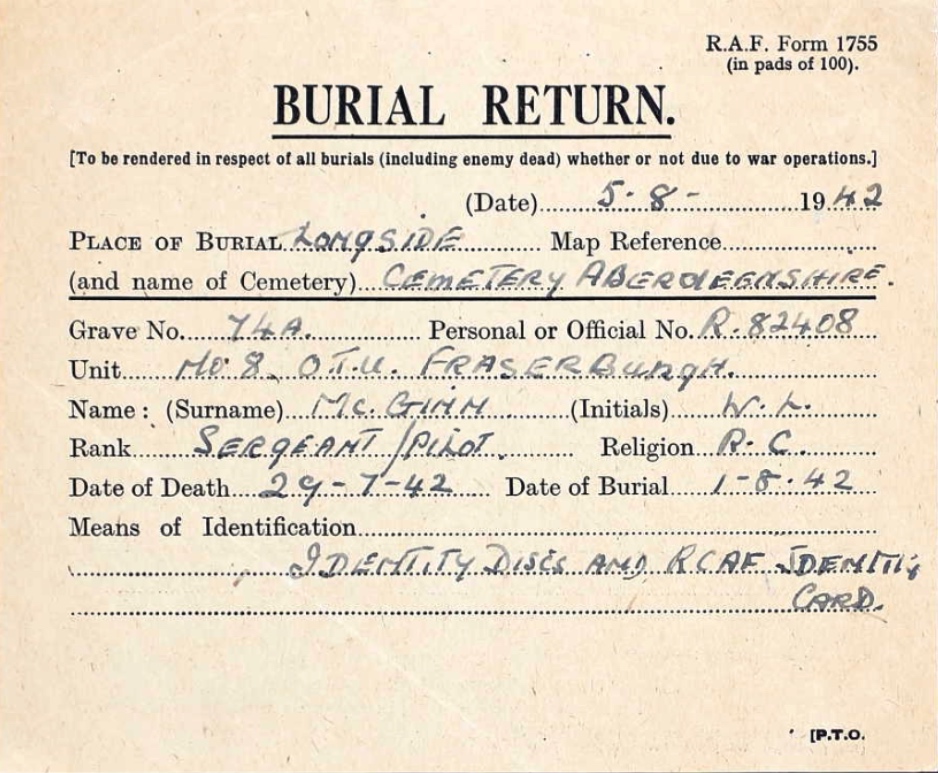 R.A.F. Form 1755
(in pads of 100).
BURIAL RETURN.
[To be rendered in respect of all burials (including enemy dead) whether or not due to war operations.]
(Date) 5-8- 1942
PLACE OF BURIAL LONGSIDE Map Reference
(and name of Cemetery) CEMETERY ABERDEENSHIRE.
Grave No. 74A. Personal or Official No. R.82408
Unit No 8. O.T.U. FRASERBURGH.
Name: (Surname) Mc.GINN (Initials) W.L.
Rank SERGEANT/PILOT. Religion R.C.
Date of Death 29-7-42 Date of Burial 1-8-42
Means of Identification
IDENTITY DISCS AND RCAF IDENTITY
CARD.
[P.T.O.